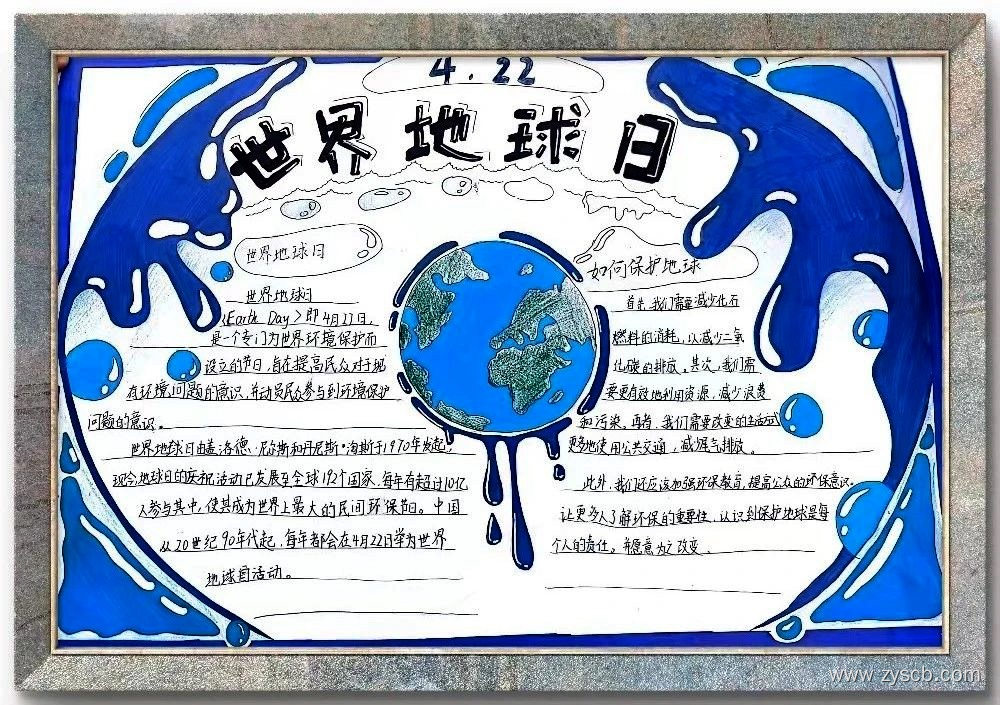 4.22
世界地球日
世界地球日
世界地球日
《Earth Day》即4月22日,
是一个专门为世界环境保护而
设立的节日,旨在提高民众对于现
有环境问题的意识,并动员民众参与到环境保护
问题的意识。
世界地球日由盖洛德·尼尔斯和丹尼斯·海斯于1970年发起,
现今地球日的庆祝活动已发展至全球192个国家,每年有超过10亿
人参与其中,使其成为世界上最大的民间环保节日。中国
从20世纪90年代起,每年都会在4月22日举为世界
地球日活动。
如何保护地球
首先,我们需要减少化石
燃料的消耗,以减少二氧
化碳的排放。其次,我们需
要更有效地利用资源,减少浪费
和污染。再者,我们需要改变的生活方式
更多地使用公共交通,减煤气排放。
此外,我们还应该加强环保教育,提高公众的环保意识。
让更多人了解环保的重要性,认识到保护地球是每
个人的责任。并愿意为之改变.
www.zyscb.com